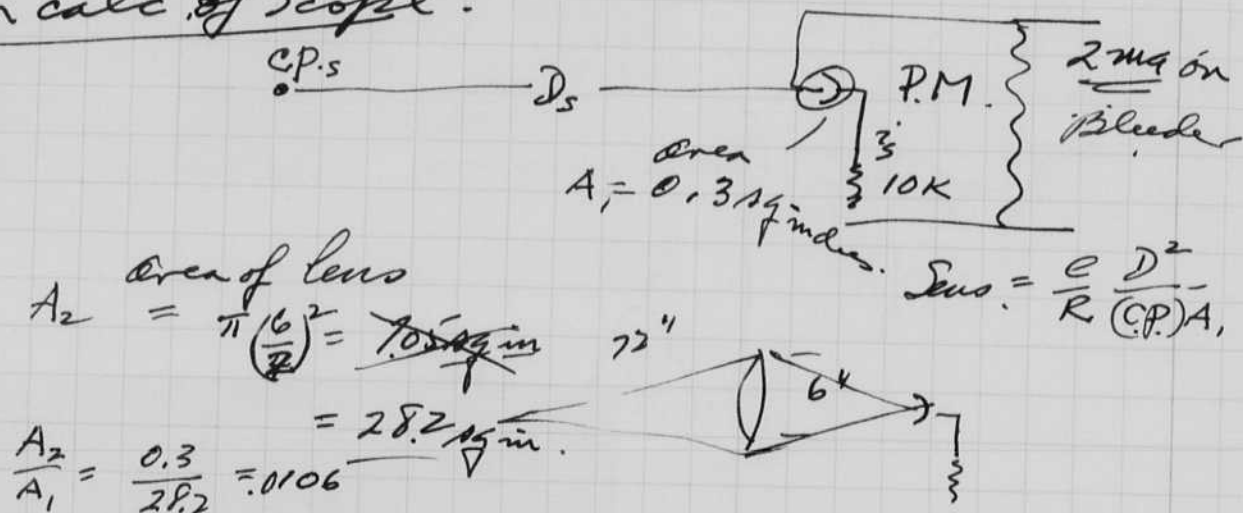 calc. of scope.
C.P.s
Ds
P.M.
2 ma on
Bleeder
is
10K
area
A₁ = 0.3 sq inches.
Sens. = e/R D²/(C.P.)A₁
area of lens
A₂ = π(6/2)² = 7.05 sq in
72"
6"
= 28.2 sq in.
A₂/A₁ = 0.3/28.2 = .0106